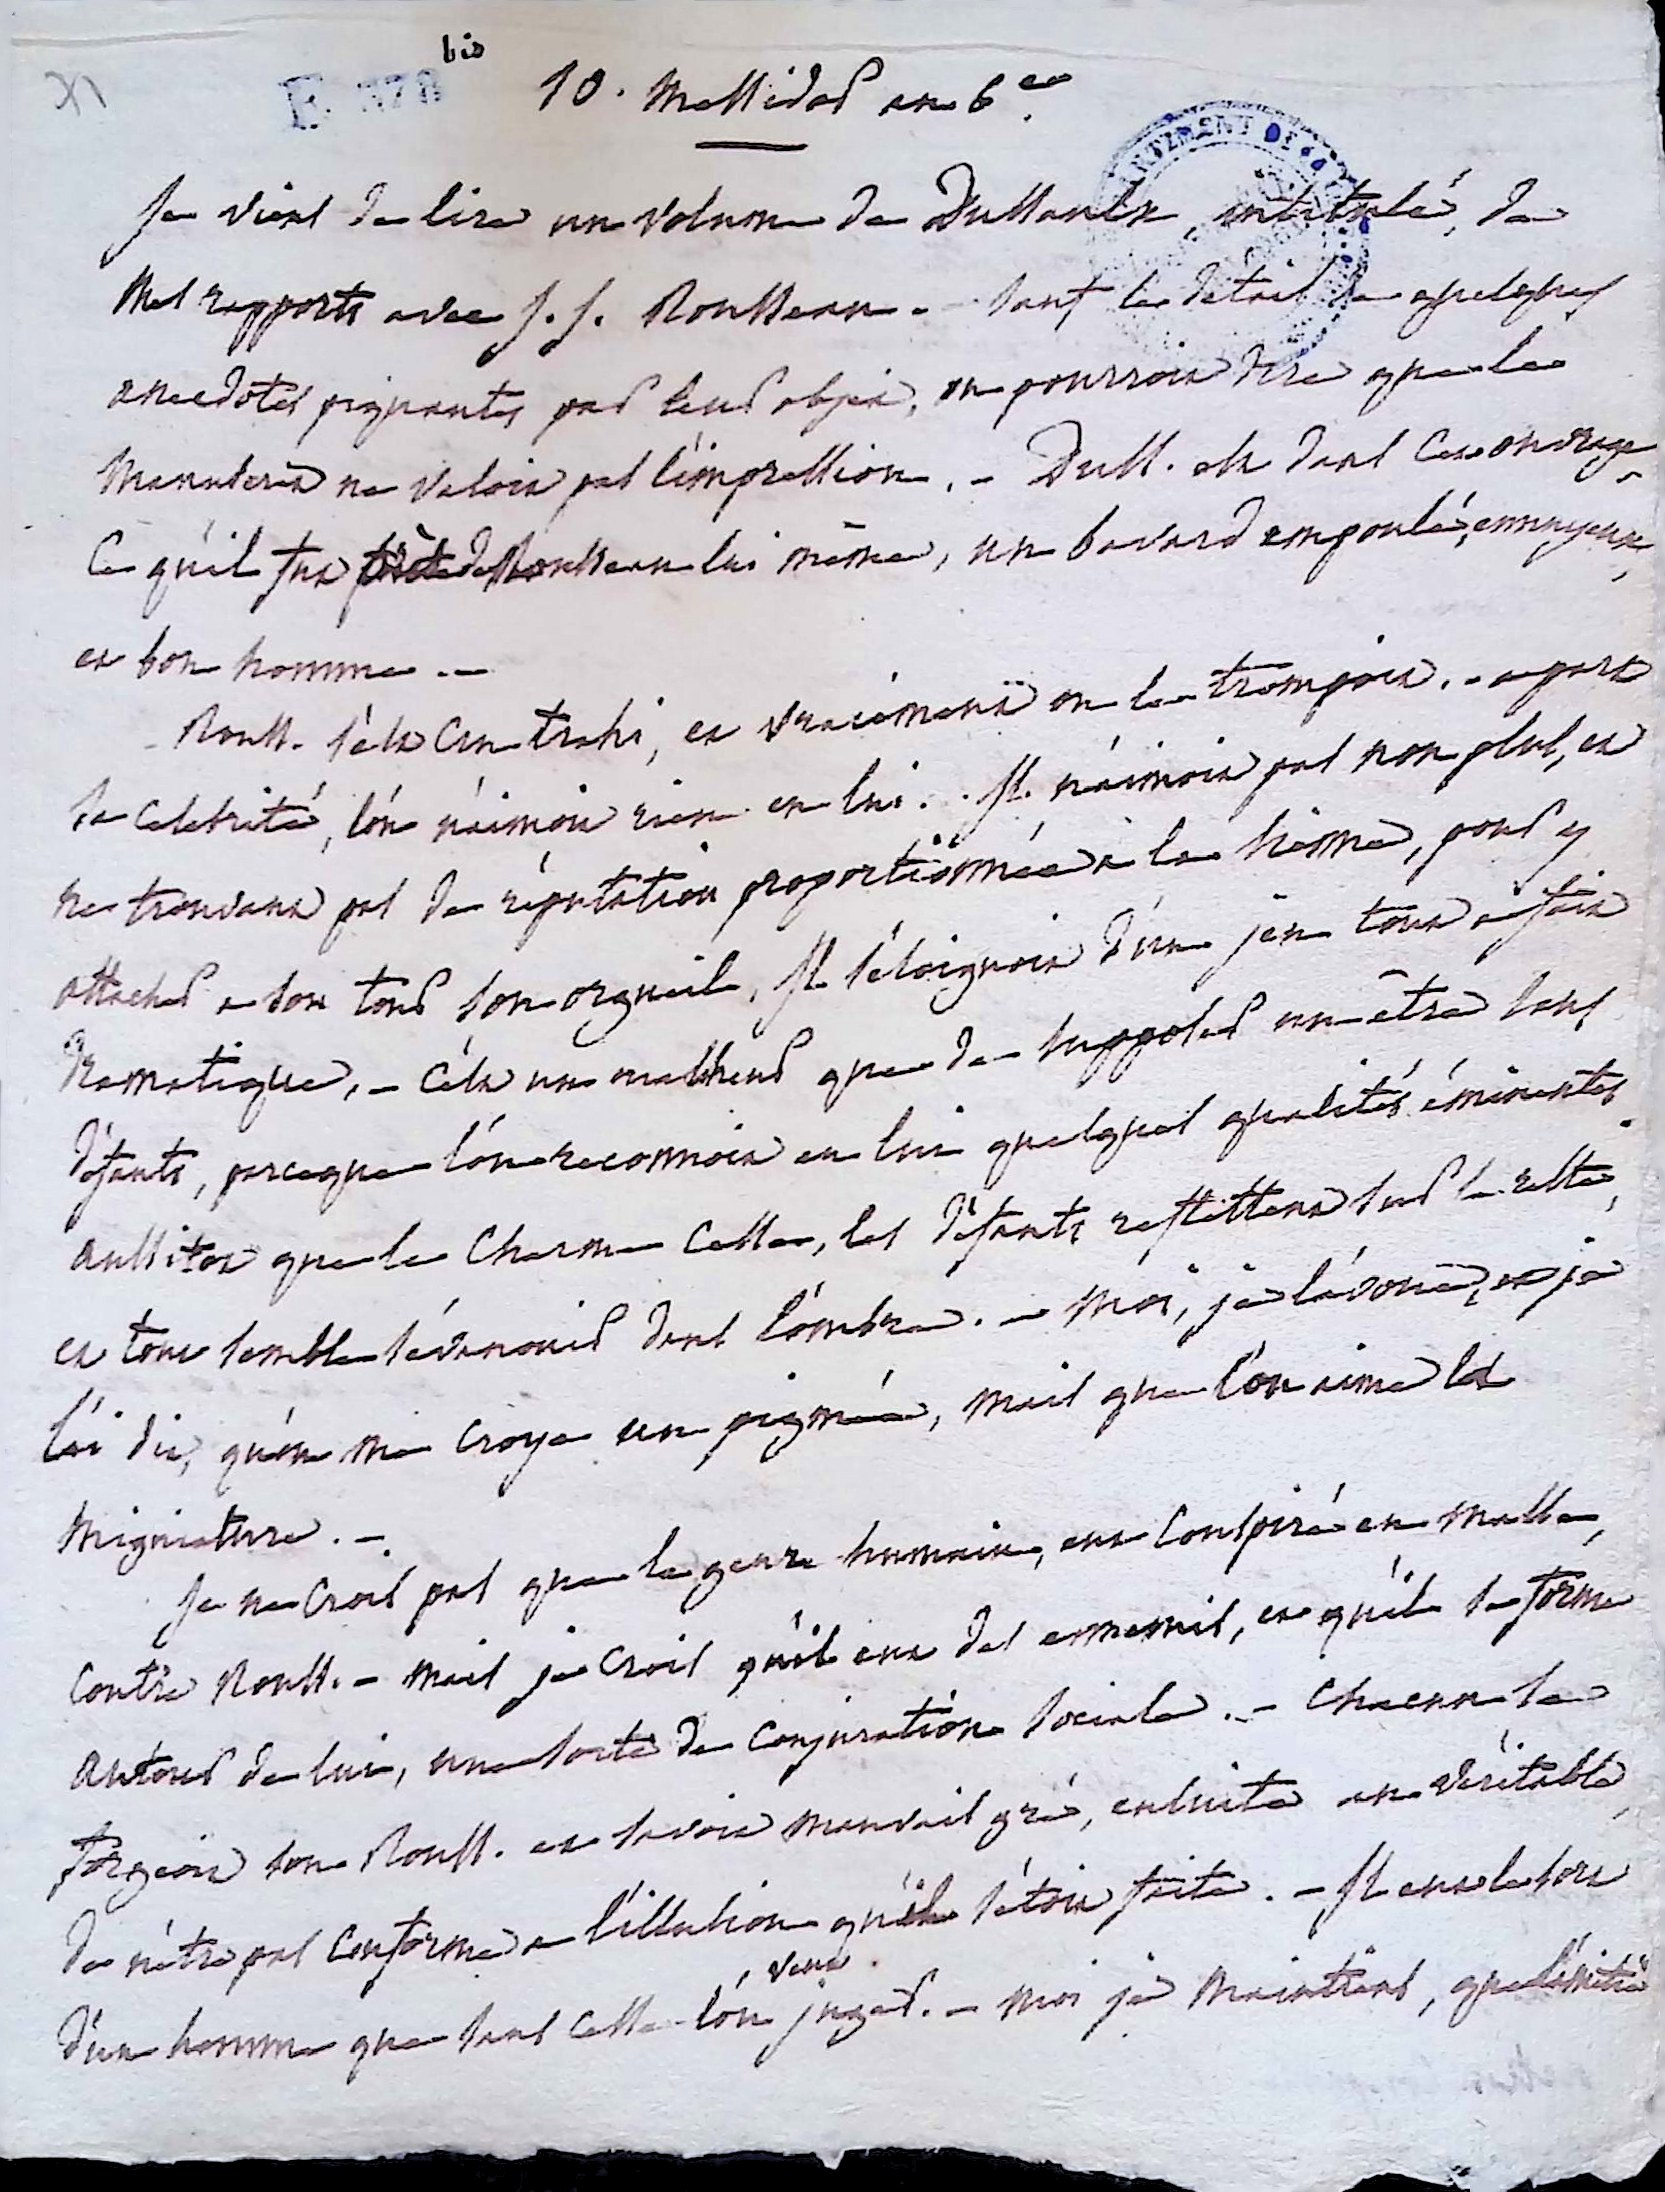 bis
10. Messidor an 6.e
Je viens de lire un volume de Dussaulx, intitulé, de
mes rapports avec J. J. Rousseau. sauf le détail de quelques
anecdotes piquantes par leur objet, on pourroit dire que le
manuscrit ne valoit pas l'impression. - Duss. est dans cet ouvrage
ce qu'il fut près de Rousseau lui même, un bavard empoulé, ennuyeux,
et bon homme. -
Rouss. s'est cru trahi, et vraiment on le trompoit. - a part
sa celebrité, l'on n'aimoit rien en lui. Il n'aimoit pas non plus, et
ne trouvant pas de réputation proportionnée a la sienne, pour y
attacher a son tour son orgueil, Il s'éloignoit d'un jeu tout a fait
dramatique. - C'est un malheur que de supposer un être sans
défauts, parceque l'on reconnoit en lui quelques qualités éminentes
aussitot que le charme cesse, les défauts reflettent sur le reste,
et tout semble s'évanouir dans l'ombre. - Moi, je l'avoue, et je
l'ai dit, qu'on me croye un pigmée, mais que l'on aime la
migniature. -
Je ne crois pas que le genre humain, eut conspiré en masse,
contre Rouss. - mais je crois qu'il eut des ennemis, et qu'il se forma
autour de lui, une sorte de conjuration sociale. - Chacun se
forgeoit son Rouss. et savoit mauvais gré, ensuite au véritable,
de n'être pas conforme a l'illusion qu'il s'étoit faite. - Il eut le sort
d'un homme que sans cesse l'on veut juger. - moi je maintiens, que l'amitié